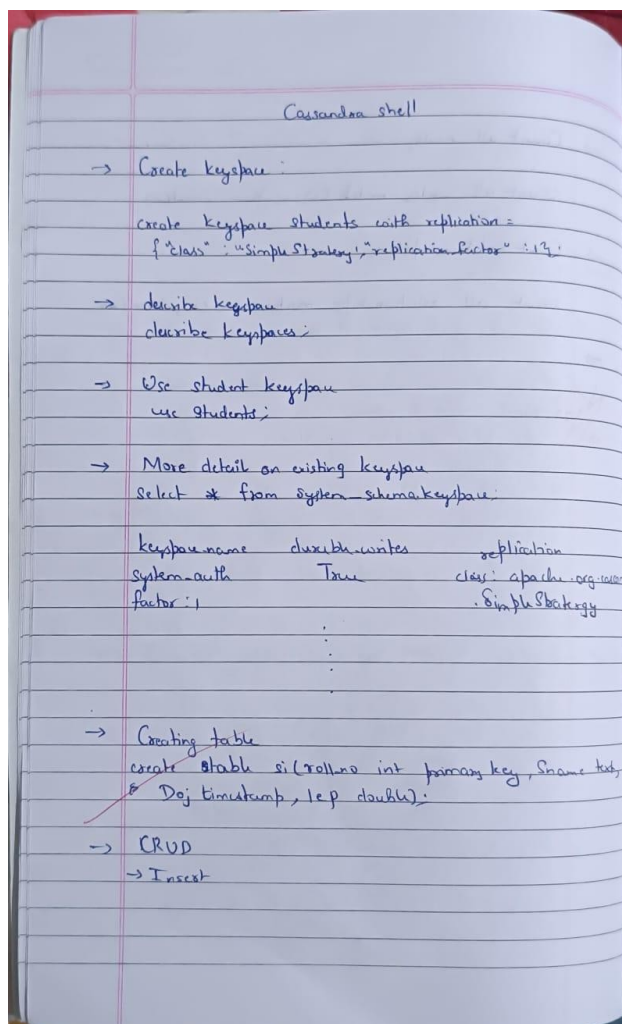 Cassandra shell
→ Create keyspace :
create keyspace students with replication =
{ "class" : "Simple Strategy", "replication_factor" : 1};
→ describe keyspace
describe keyspaces;
→ Use student keyspace
use students;
→ More detail on existing keyspace
select * from system_schema.keyspace;
keyspace_name durable_writes replication
system_auth True class: apache.org.
factor : 1 .Simple Stratergy
→ Creating table
create table si (roll_no int primary key, Sname text,
Doj timestamp, lep double);
→ CRUD
→ Insert